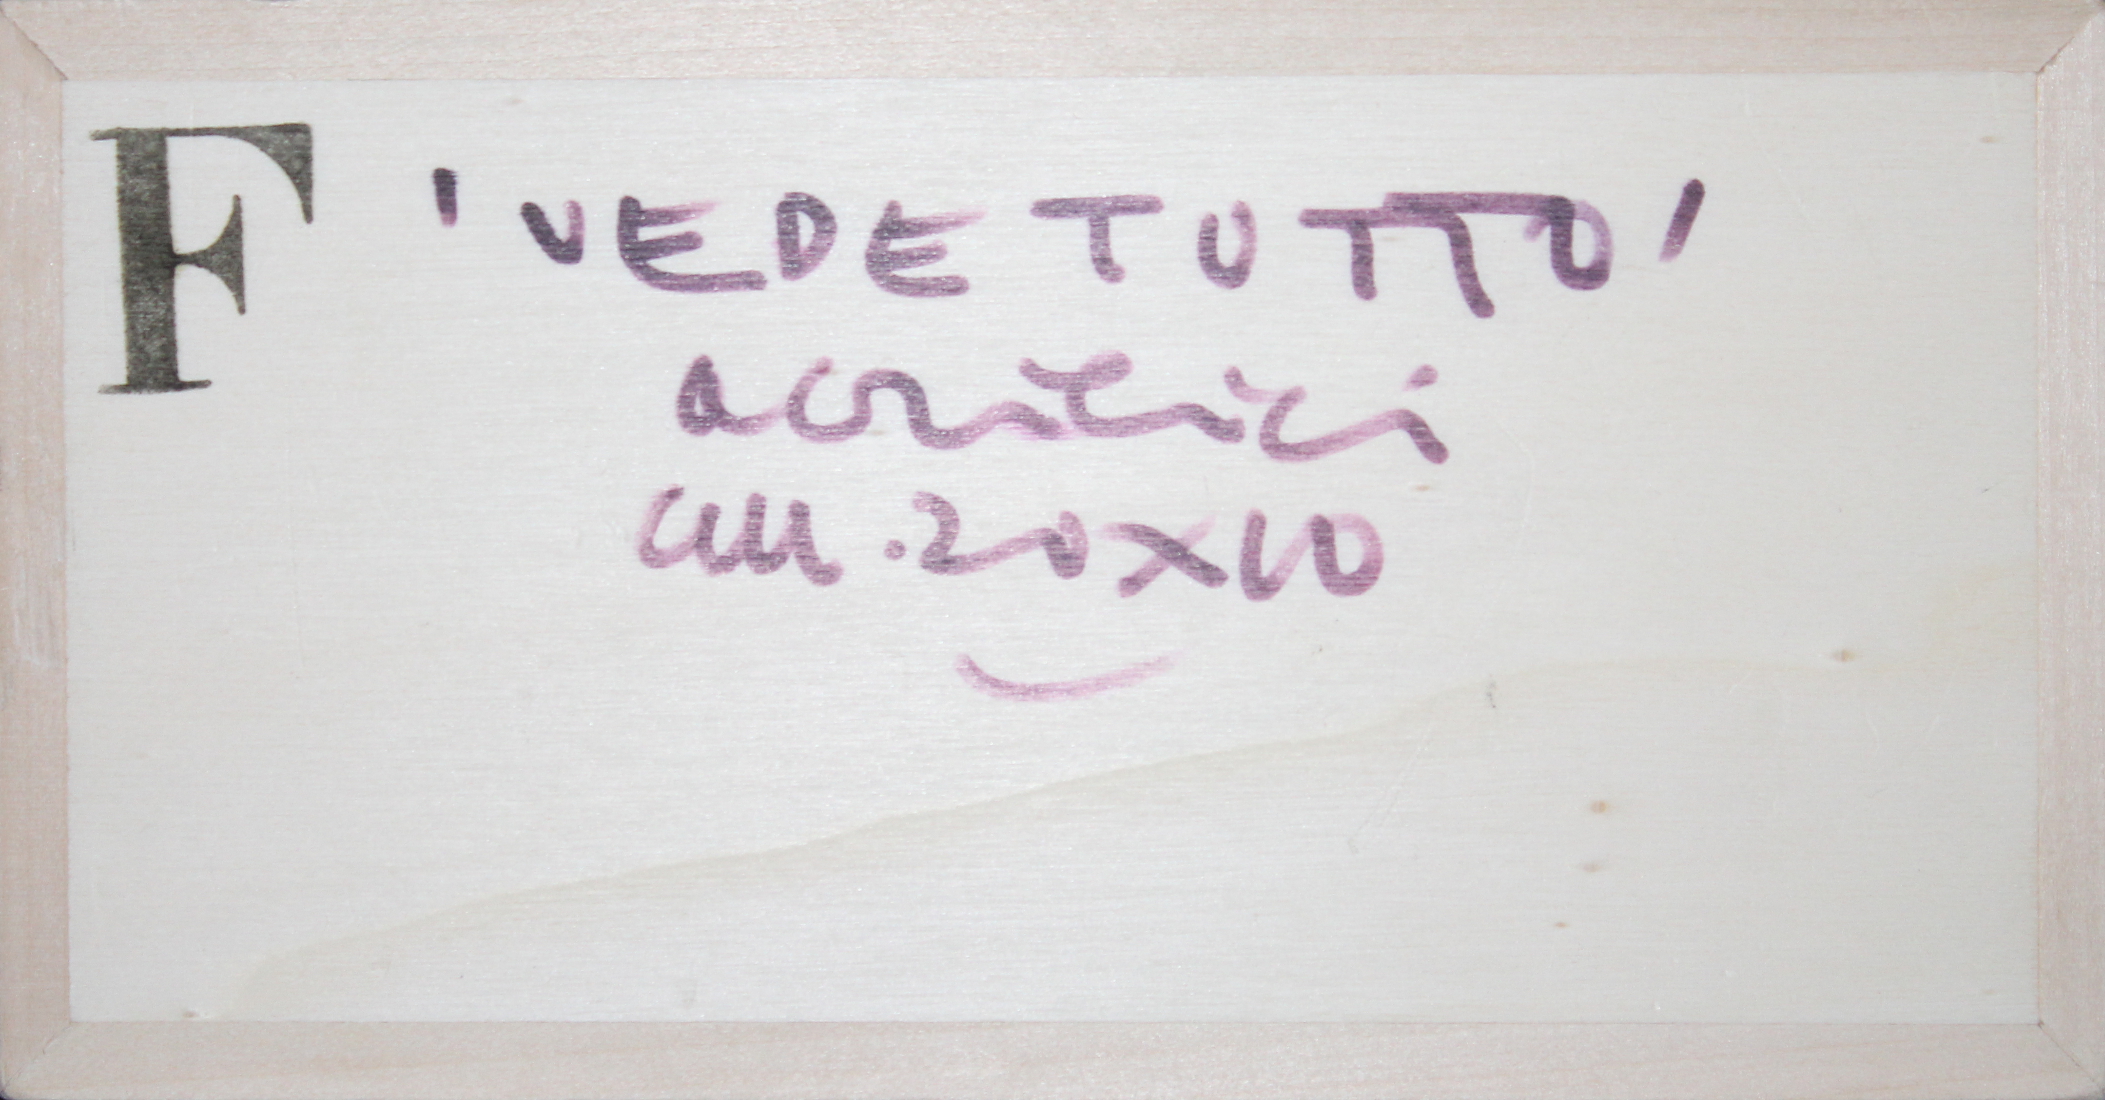 F 'VEDE TUTTO'
acrilici
cm.20x10